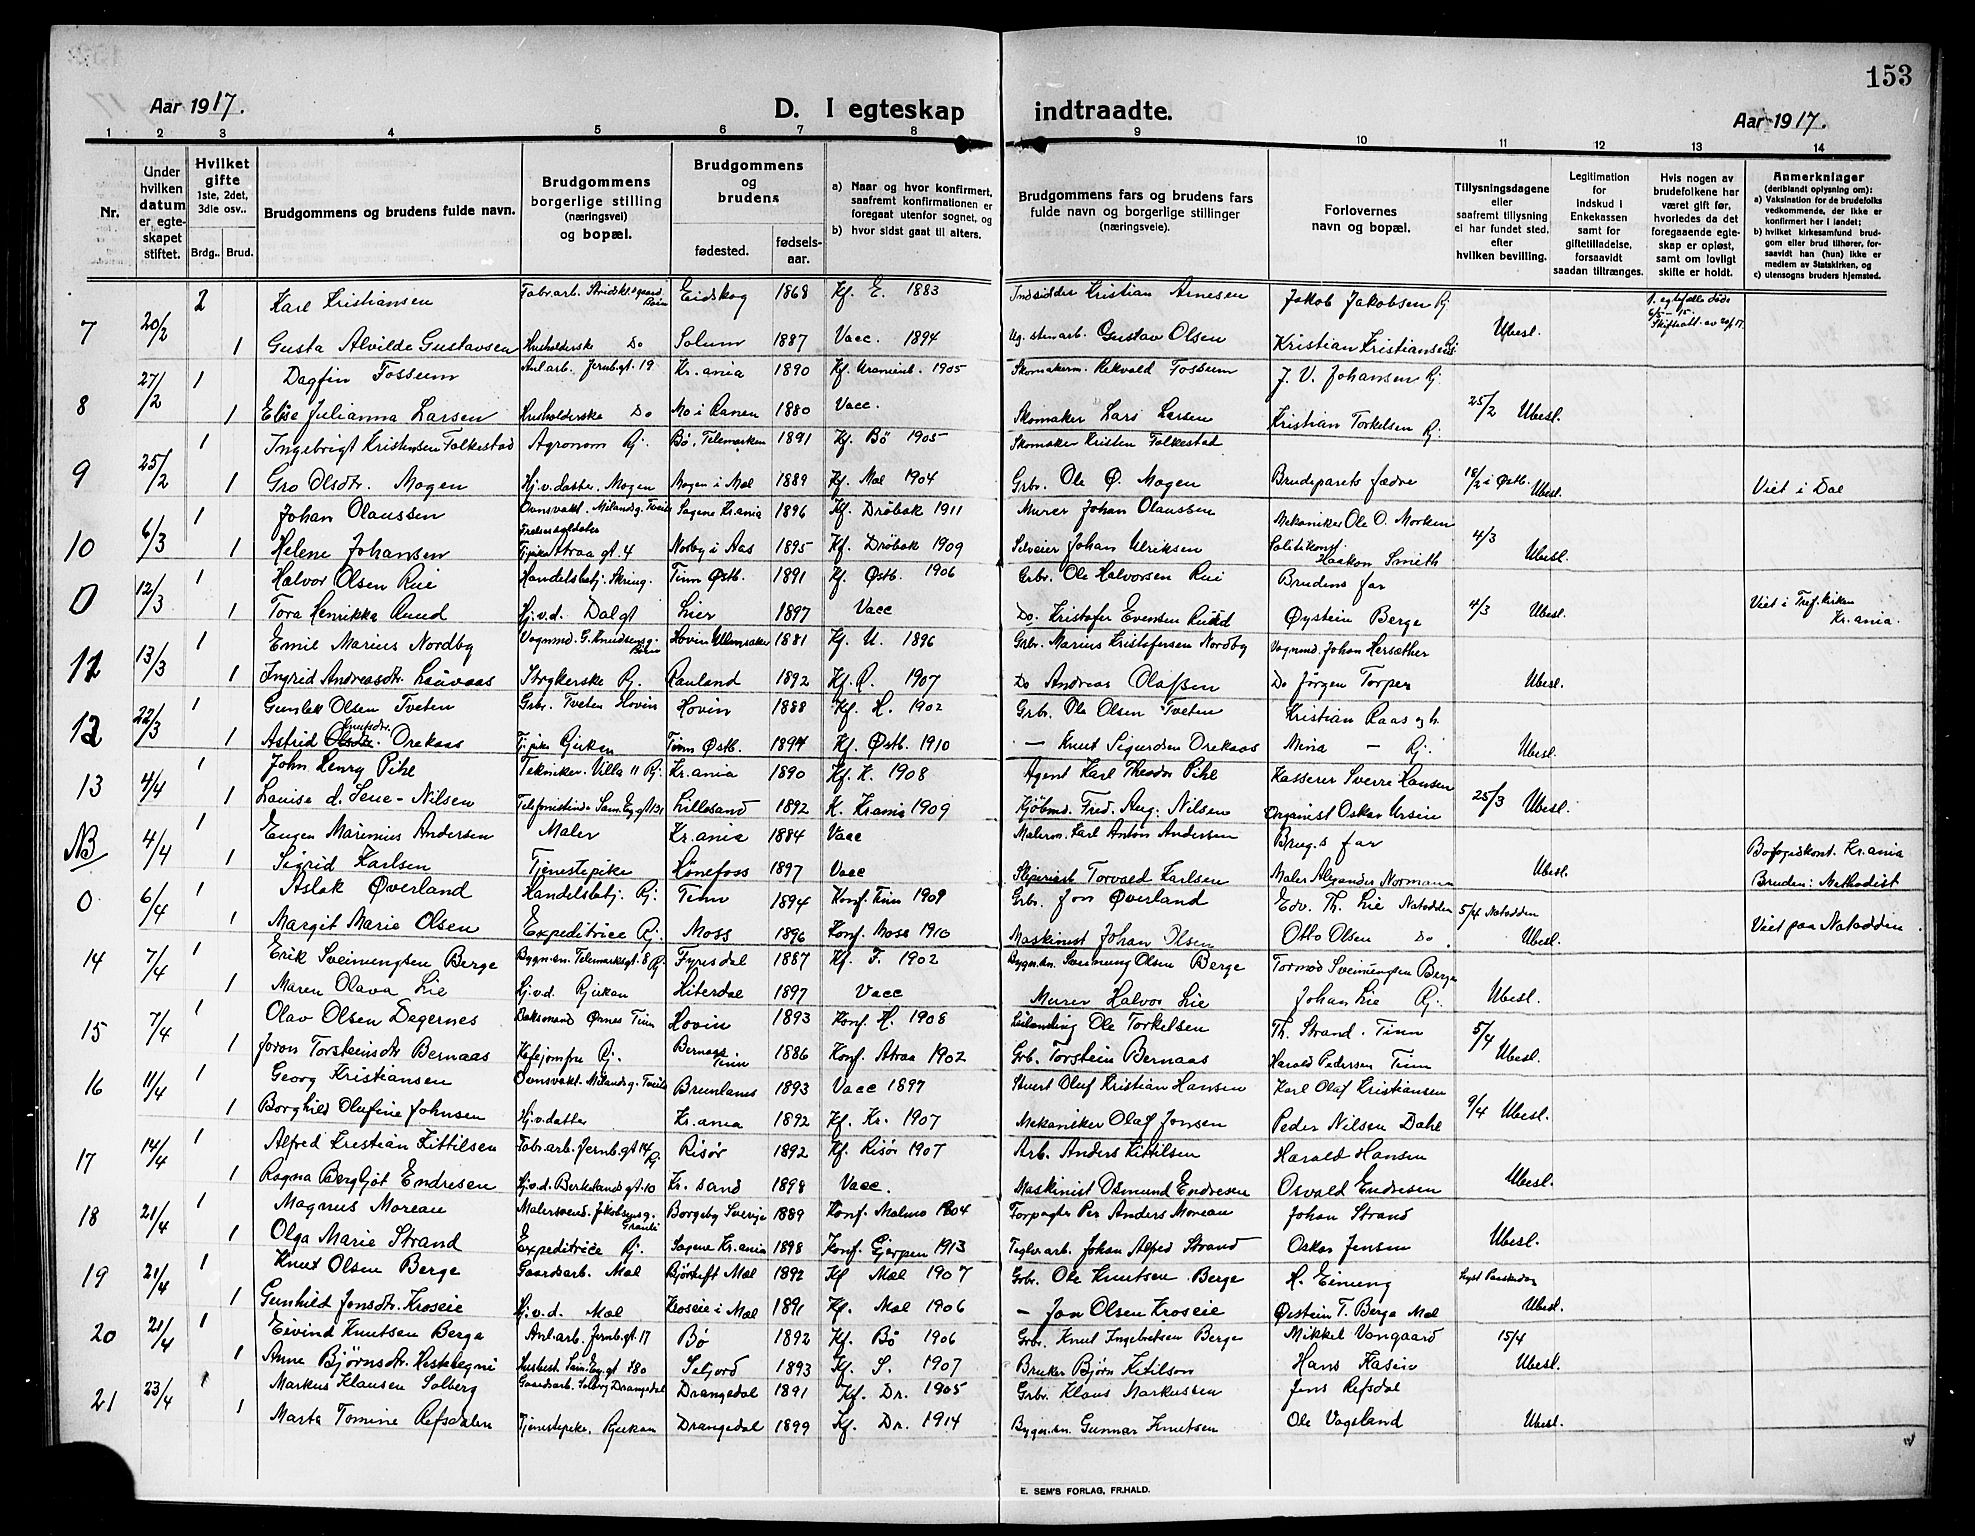 153
Aar 1917.
D. I egteskap indtraadte.
Aar 1917.
1 2 3 4 5 6 7 8 9 10 11 12 13 14
Nr.
Under hvilken datum er egteskapet stiftet.
Hvilket gifte 1ste, 2det, 3die osv..
Brdg.. Brud.
Brudgommens og brudens fulde navn.
Brudgommens borgerlige stilling (næringsvei) og bopæl.
Brudgommens og brudens
fødested. fødsels-aar.
a) Naar og hvor konfirmert, saafremt konfirmationen er foregaat utenfor sognet, og
b) hvor sidst gaat til alters.
Brudgommens fars og brudens fars fulde navn og borgerlige stillinger (næringsveie).
Forlovernes navn og bopæl.
Tillysningsdagene eller saafremt tillysning ei har fundet sted, efter hvilken bevilling.
Legitimation for indskud i Enkekassen samt for giftetilladelse, forsaavidt saadan tiltrænges.
Hvis nogen av brudefolkene har været gift før, hvorledes da det foregaaende egteskap er opløst, samt om lovligt skifte er holdt.
Anmerkninger (deriblandt oplysning om):
a) Vaksination for de brudefolks vedkommende, der ikke er konfirmert her i landet;
b) hvilket kirkesamfund brudgom eller brud tilhører, forsaavidt han (hun) ikke er medlem av Statskirken, og
c) utensogns bruders hjemsted.
7 20/2 2 Karl Kristiansen Fabr.arb. Eidskog 1868 Kf. E. 1883 Indsidder Kristian Arnesen Jakob Jakobsen Rj.
1 Gusta Alvilde Gustavsen Husholderske Do Solum 1887 Vacc. 1894 Gustav Olsen Kristian Kristiansen Rj. Ubesl.
8 27/2 1 Dagfin Fossum Anl.arb. Jernb.gt. 19 Kr.ania 1890 Kf. 1905 Skomakerm. Rekvald Fossum J. V. Johansen Rj.
1 Elise Julianna Larsen Husholderske Do Mo i Ranen 1880 Vacc. Skomaker Lars Larsen Kristian Torkelsen Rj. 25/2 Ubesl.
9 25/2 1 Ingebrigt Kristensen Folkestad Agronom Rj. Bø. Telemarken 1891 Kf. Bø 1905 Skomaker Kristen Folkestad
1 Gro Olsdtr. Mogen Hj.v.datter. Mogen Mogen i Mæl 1889 Kf. Mæl 1904 Grbr. Ole Ø. Mogen Brudeparets fædre 18/2 i Østb. Ubesl. Viet i Dal
10 6/3 1 Johan Olaussen Ovnsvakt. Milandsg. Tveito Sagene Kr.ania 1896 Kf. Drøbak 1911 Murer Johan Olaussen Mekaniker Ole O. Morken
1 Helene Johansen Pike Atraa gt. 4 Nosby i Aas 1895 Kf. Drøbak 1909 Johan Ulriksen Politikonst. Haakon Smith 4/3 Ubesl.
0 12/3 1 Halvor Olsen Rui Handelsbetj. Skring. Tinn Østb. 1891 Kf. Østb. 1906 Grbr. Ole Halvorsen Rui Brudens far
1 Tora Henrikka Ruud Hj.v.d. Dalgt Lier 1897 Vacc Do. Kristofer Evensen Ruud Øystein Berge 4/3 Ubesl. Viet i Tref. kirken Kr.ania.
11 13/3 1 Emil Marius Nordby Vognmd. G. Knudsensg. Hovin Ullensaker 1881 Kf. U. 1896 Grbr. Marius Kristofersen Nordby Vognmd. Johan Hersæther
1 Ingrid Andreasdtr. Lauvaas Strykerske Rj. Rauland 1892 Kf. R. 1907 Do Andreas Olaßen Do Jørgen Torper Ubesl.
12 22/3 1 Gunlek Olsen Tveten Grbr. Tveten Hovin Hovin 1888 Kf. H. 1902 Grbr. Ole Olsen Tveten Kristian Raas og h.
1 Astrid Knutsdtr. Orekaas Tj.pike Rjukan Tinn Østb. 1894 Kf. Østb. 1910 — Knut Sigurdsen Orekaas Mina — Rj. Ubesl.
13 4/4 1 John Henry Pihl Tekniker. Villa 11 Rj. Kr.ania 1890 Kf. K. 1908 Agent Karl Theodor Pihl Kasserer Sverre Hansen
1 Louise d. Seue-Nilsen Telefonistinde Sam.Eg.gt 121 Lillesand 1892 K. Kr.ania 1909 Kjøbmd. Fred. Aug. Nilsen Organist Oskar Ursin 25/3 Ubesl.
NB 4/4 1 Eugen Marinius Andersen Maler Kr.ania 1884 Vacc Malerm. Karl Anton Andersen Brug.s far Bofogedkont. Kr.ania
1 Sigrid Karlsen Tjenestepike Hønefoss 1897 Vacc Torvald Karlsen Maler Alexander Normann Ubesl. Bruden: Methodist
0 6/4 1 Aslak Øverland Handelsbetj. Rj. Tinn 1894 Konf. Tinn 1909 Grbr. Jon Øverland Edv. Th. Lie Notodden 5/4 Notodden
1 Margit Marie Olsen Expeditrice Rj. Moss 1896 Konf. Moss 1910 Maskinist Johan Olsen Otto Olsen Do Ubesl. Viet paa Notodden
14 7/4 1 Erik Sveinungsen Berge Bygn.sn. Telemarksgt. 8 Rj. Fyresdal 1887 Kf. F. 1902 Bygn.sn. Sveinung Olsen Berge Tormod Sveinungsen Berge
1 Maren Olava Lie Hj.v.d. Rjukan Hiterdal 1897 Vacc Murer Halvor Lie Johan Lie Rj. Ubesl.
15 7/4 1 Olav Olsen Dagernes Baksmand Ørnes Tinn Hovin 1893 Konf. H. 1908 Leilænding Ole Torkelsen Th. Strand. Tinn
1 Joron Torsteinsdtr Bernaas Kafejomfru Rj. Bernaas Tinn 1886 Konf. Atraa 1902 Grb. Torstein Bernaas Harald Pedersen Tinn 5/4 Ubesl.
16 11/4 1 Georg Kristiansen Ovnsvakt. Milandsg. Tveito Brunlanes 1893 Vacc 1897 Stuert Oluf Kristian Hansen Karl Olaf Kristiansen
1 Borghild Olufine Johnsen Hj.v.datter Kr.ania 1892 Kf. Kr. 1907 Mekaniker Olaf Jonsen Peder Nilsen Dahl 9/4 Ubesl.
17 14/4 1 Alfred Kristian Kittilsen Fabr.arb. Jernb.gt 14 Rj. Risør 1892 Kf. Risør 1907 Arb. Anders Kittilsen Harald Hansen
1 Ragna Bergljot Endresen Hj.v.d. Berkelandsgt. 10 Kr.sand 1898 Vacc. Maskinist Osmund Endresen Osvald Endresen Ubesl.
18 21/4 1 Magnus Moreau Malersvend. Jakobsensg. Borgeby Sverige 1889 Konf. Malmø 1904 Forpagter Per Anders Moreau Johan Strand
1 Olga Marie Strand Expeditrice Rj. Sagene Kr.ania 1898 Konf. Gjerpen 1913 Teglv.arb. Johan Alfred Strand Oskar Jensen Ubesl.
19 21/4 1 Knut Olsen Berge Gaardsarb. Mæl Bjørtuft Mæl 1892 Kf Mæl 1907 Grbr. Ole Knutsen Berge H. Einung Lyst Paaskedag
1 Gunhild Jonsdtr. Kroseie Hj.v.d. Mæl Kroseie i Mæl 1891 Kf. Mæl 1906 — Jon Olsen Kroseie Øistein T. Berge Mæl Ubesl.
20 21/4 1 Eivind Knutsen Berge Anl.arb. Jernb.gt. 17 Bø 1892 Kf. Bø 1906 Grbr. Knut Ingebretsen Berge Mikkel Vangaard 15/4
1 Anne Bjørnsdtr. Heskebegni Husbest. Sam.Eg.gt 180 Seljord 1893 Kf. S. 1907 Bruker Bjørn Kitilson Hans Kasin Ubesl.
21 23/4 1 Markus Klausen Solberg Gaardsarb. Solberg Drangedal Drangedal 1891 Kf. Dr. 1905 Grbr. Klaus Markussen Jens Refsdal
1 Marta Tomine Refsdalen Tjenestepike, Rjukan Drangedal 1899 Kf. Dr. 1914 Bygn.sn. Gunnar Knutsen Ole Vagsland Ubesl.
E. SEM'S FORLAG, FR.HALD.